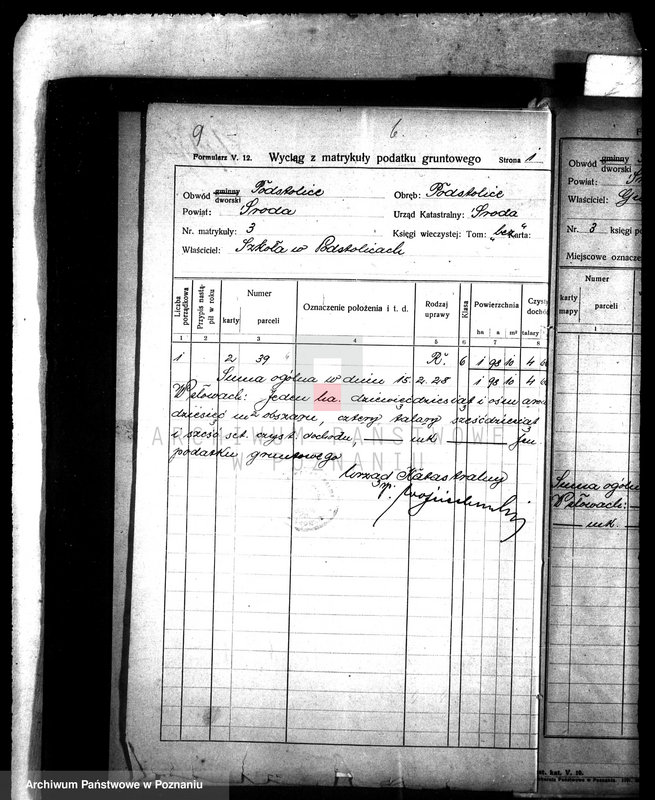 9
6
Formularz V. 12. Wyciąg z matrykuły podatku gruntowego Strona 1
Obwód gminny dworski Podstolice Obręb: Podstolice
Powiat: Środa Urząd Katastralny: Środa
Nr. matrykuły: 3 Księgi wieczystej: Tom: "bez" Karta:
Właściciel: Szkoła w Podstolicach
Liczba porządkowa Przypis nastąpił w roku Numer karty parceli Oznaczenie położenia i t. d. Rodzaj uprawy Klasa Powierzchnia ha a m² Czysty dochód talary
1 2 3 4 5 6 7 8
1 2 39 R. 6 1 98 10 4 66
Suma ogólna w dniu 15.2.28 1 98 10 4 66
W słowach: jeden ha. dziewięćdziesiąt i osiem arów
dziesięć m² obszaru, cztery talary sześćdziesiąt
i sześć set. czyst. dochodu, — mk. — fen
podatku gruntowego
Urząd Katastralny
ARCHIWUM PAŃSTWOWE
W POZNANIU
Obwód gminny dworski
Powiat:
Właściciel:
Nr. 3 księgi
Miejscowe
Numer
karty mapy parceli
1
Suma ogólna
W słowach:
— mk.
kat. V. 10.
Archiwum Państwowe w Poznaniu